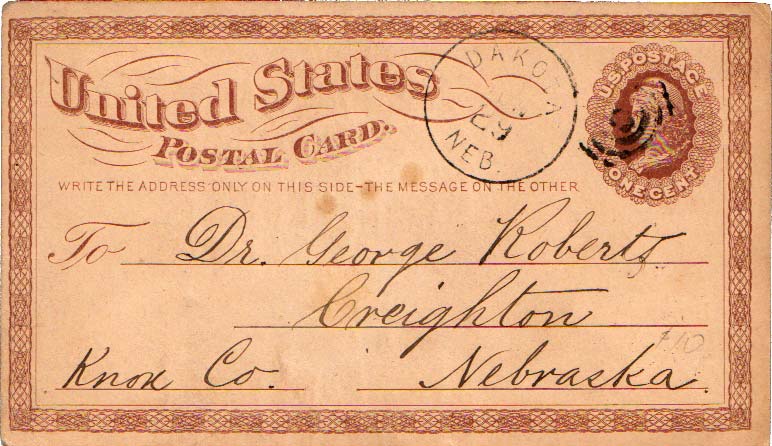 United States
POSTAL CARD.
DAKOTA
29
NEB.
U.S. POSTAGE
ONE CENT
WRITE THE ADDRESS ONLY ON THIS SIDE-THE MESSAGE ON THE OTHER
To Dr. George Roberts
Creighton
Knox Co. Nebraska